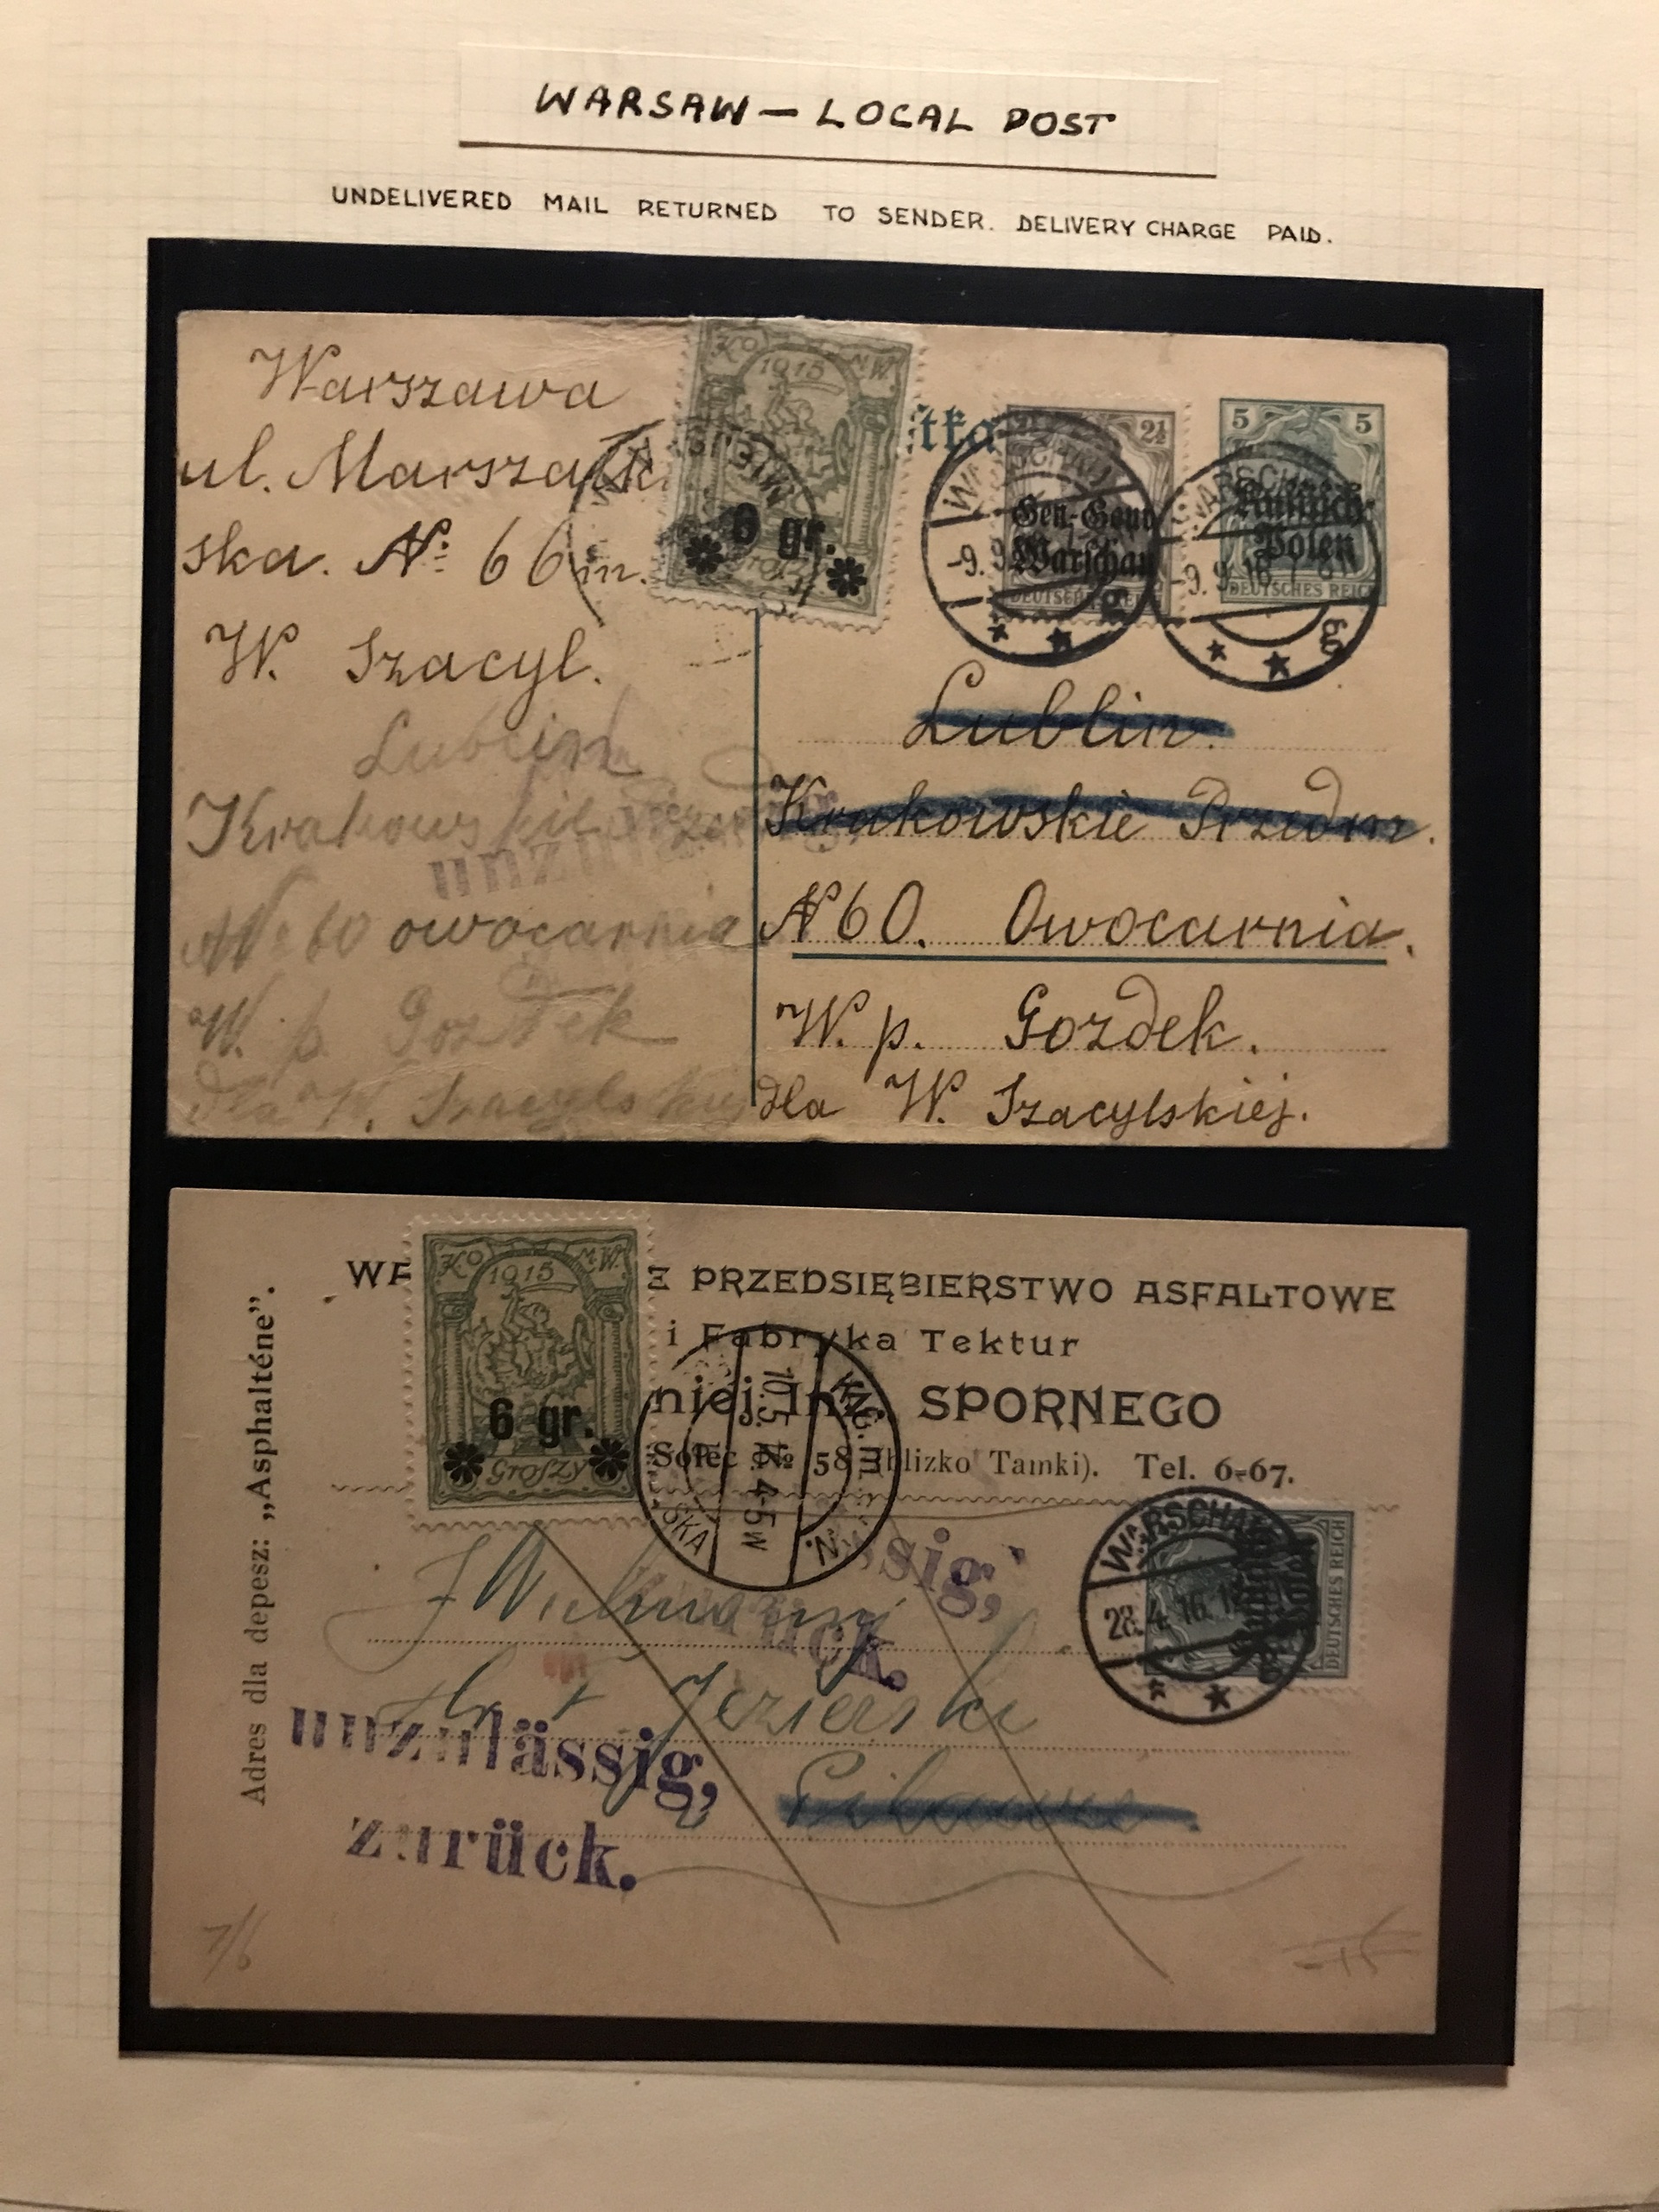 WARSAW — LOCAL POST
UNDELIVERED MAIL RETURNED TO SENDER. DELIVERY CHARGE PAID.
Warszawa
ul. Marszałk
ska. № 66 m.
W. Szacył.
Lublin
Krakowskie
№ 60 owocarnia
W. p. Gozdek
dla W. Szacylskiej
unzulässig,
KO M.W.
1915
6 gr.
Groszy
tka
2½
Gen.-Gouv.
Warschau
DEUTSCHES REICH
WARSCHAU
-9.9
5 5
Russisch-
Polen
DEUTSCHES REICH
WARSCHAU
-9.9.16.
Lublin.
Krakowskie Przedm.
N 60. Owocarnia.
W. p. Gozdek.
dla W. Szacylskiej.
Adres dla depesz: „Asphalténe".
KO M.W.
1915
6 gr.
Groszy
E PRZEDSIĘBIERSTWO ASFALTOWE
i Fabryka Tektur
niej Inż. SPORNEGO
Solec № 58 (blizko Tamki). Tel. 6-67.
10.5. 4-5 N
SKA
DEUTSCHES REICH
Russisch-
Polen
WARSCHAU
28.4.16.
ssig,
rück.
Jezierski
unzulässig,
zurück.
7/6